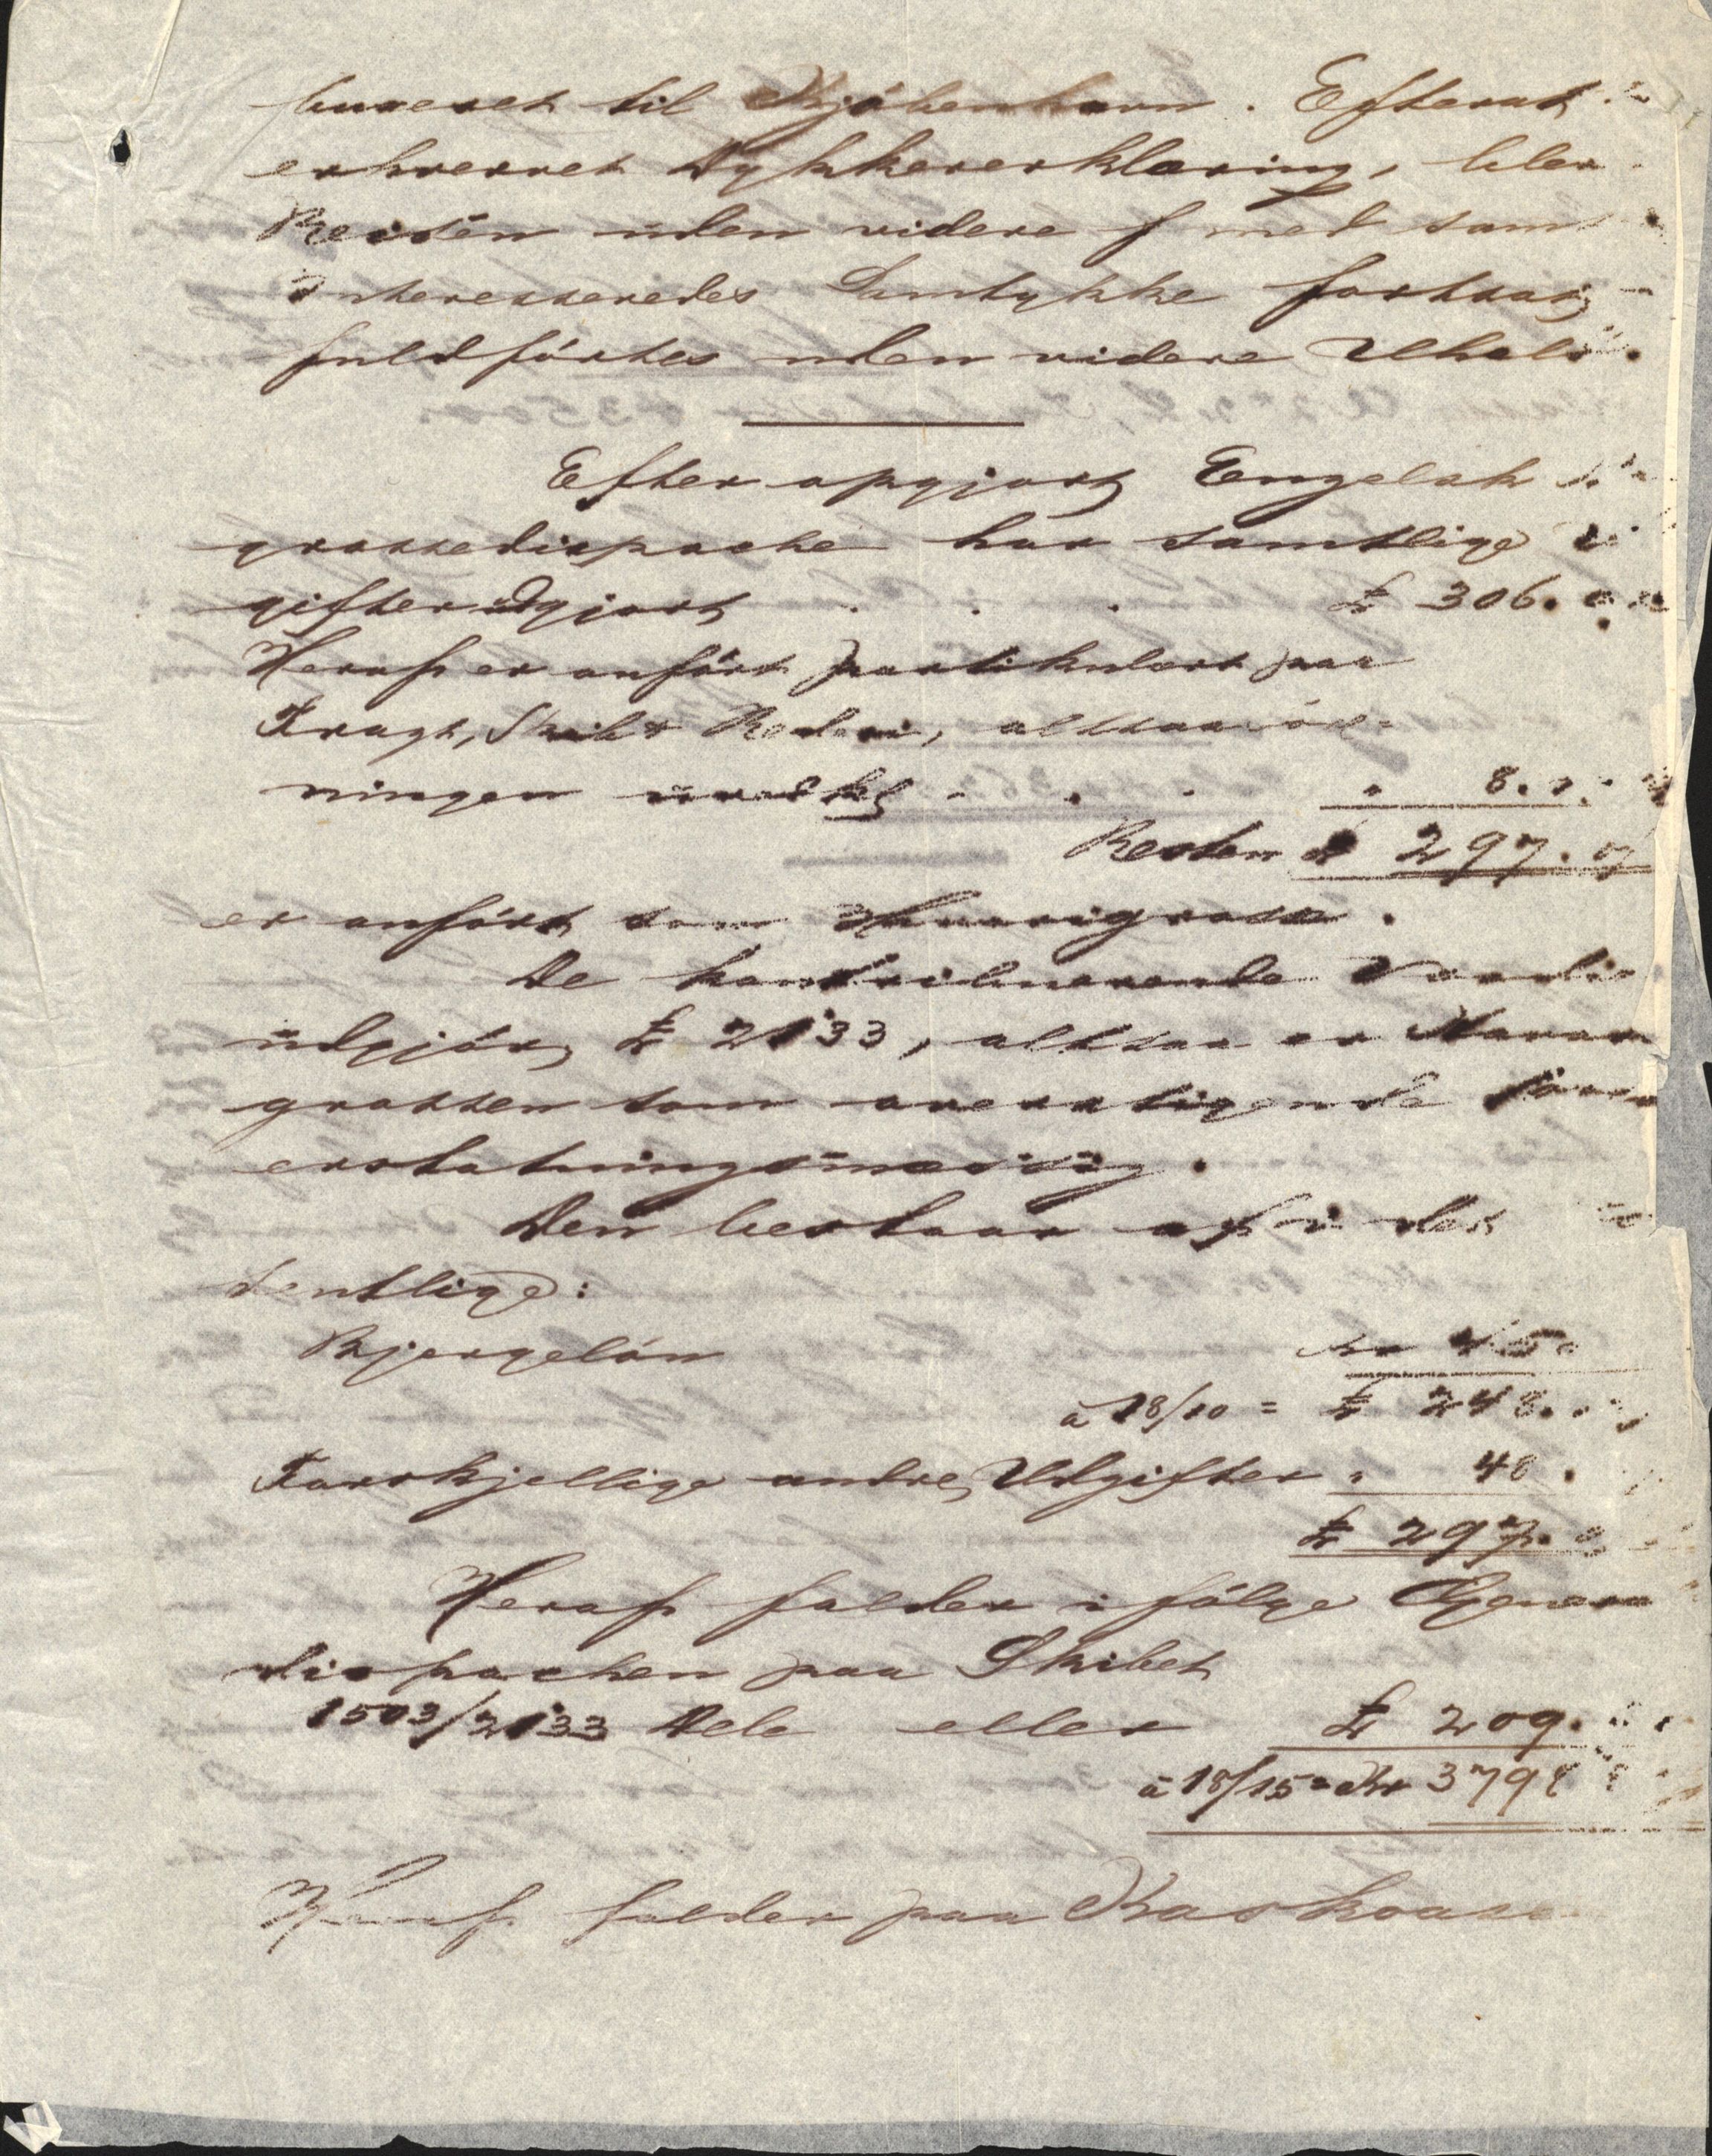 til Kjöbenhavn. Efterat
erhvervet Dykkererklæring, blev
Reisen uden videre med sam
Interesseredes Samtykke fortsat,
fuldførtes uden videre Uheld.
Efter opgjort Engelsk
grossedispache har samtlige
gifter udgjort . . . £ 306.
Heraf er anført partikulært paa
Fragt, Skib & Rederi, altsaa
ningen - . . " 8.
Resten £ 297.
er anført som Havarigrosse.
De kontribuerende Værdi
udgjör £ 2133, altsaa er Havari
grossen som overstigende
erstatningsmæssig.
Den bestaar af i det
sentlige:
Bjergelön Kr 450
à 18/10 = £ 248.
Forskjellige andre Udgifter " 48.
£ 297.
Heraf falder i følge Genera
dispachen paa Skibet
1503/2133 Dele eller £ 209.
à 18/15 = Kr 3798
Heraf falder paa Kaskoass